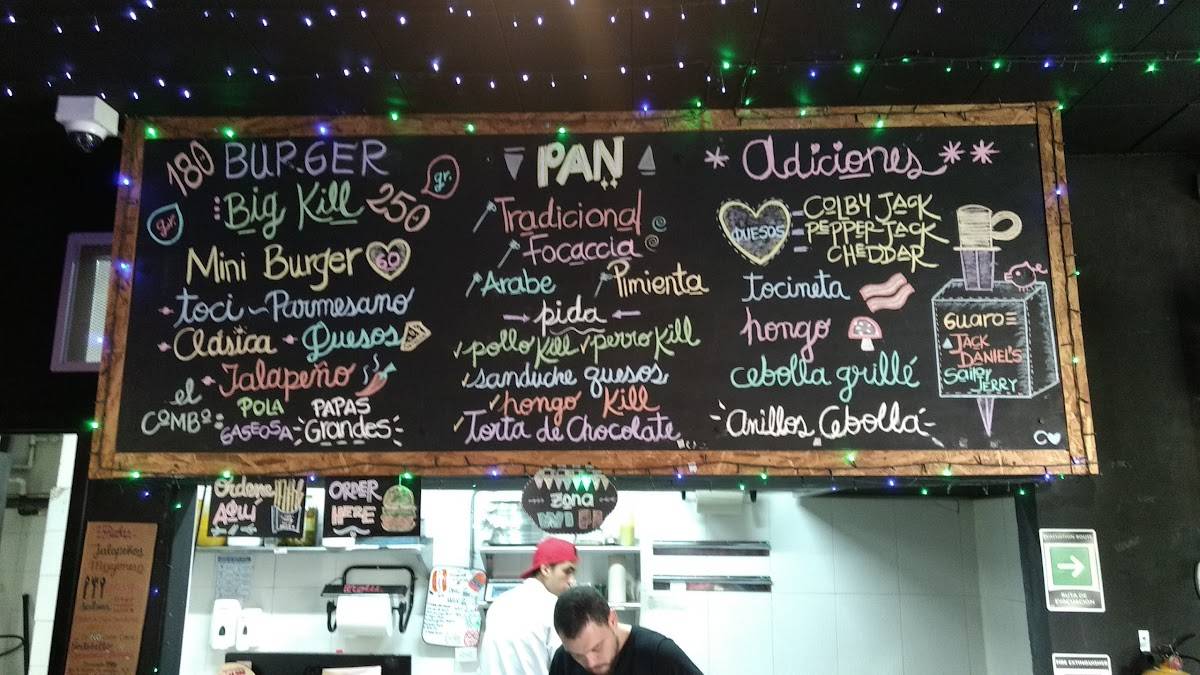 180 gr. BURGER
Big Kill 250 gr.
Mini Burger 60
toci-Parmesano
Clásica Quesos
Jalapeño
el COMBO: POLA PAPAS
GASEOSA Grandes
PAN
Tradicional
Focaccia
Arabe Pimienta
pida
pollo Kill perro Kill
sanduche quesos
hongo Kill
Torta de Chocolate
Adiciones
QUESOS
COLBY JACK
PEPPER JACK
CHEDDAR
tocineta
hongo
cebolla grillé
Anillos Cebolla
GUARO
JACK
DANIEL'S
Sailor
JERRY
Ordene
AQUÍ
ORDER
HERE
Zona
WI FI
Jalapeños
Mayonesa
NO
EVACUATION ROUTE
RUTA DE
EVACUACIÓN
FIRE EXTINGUISHER